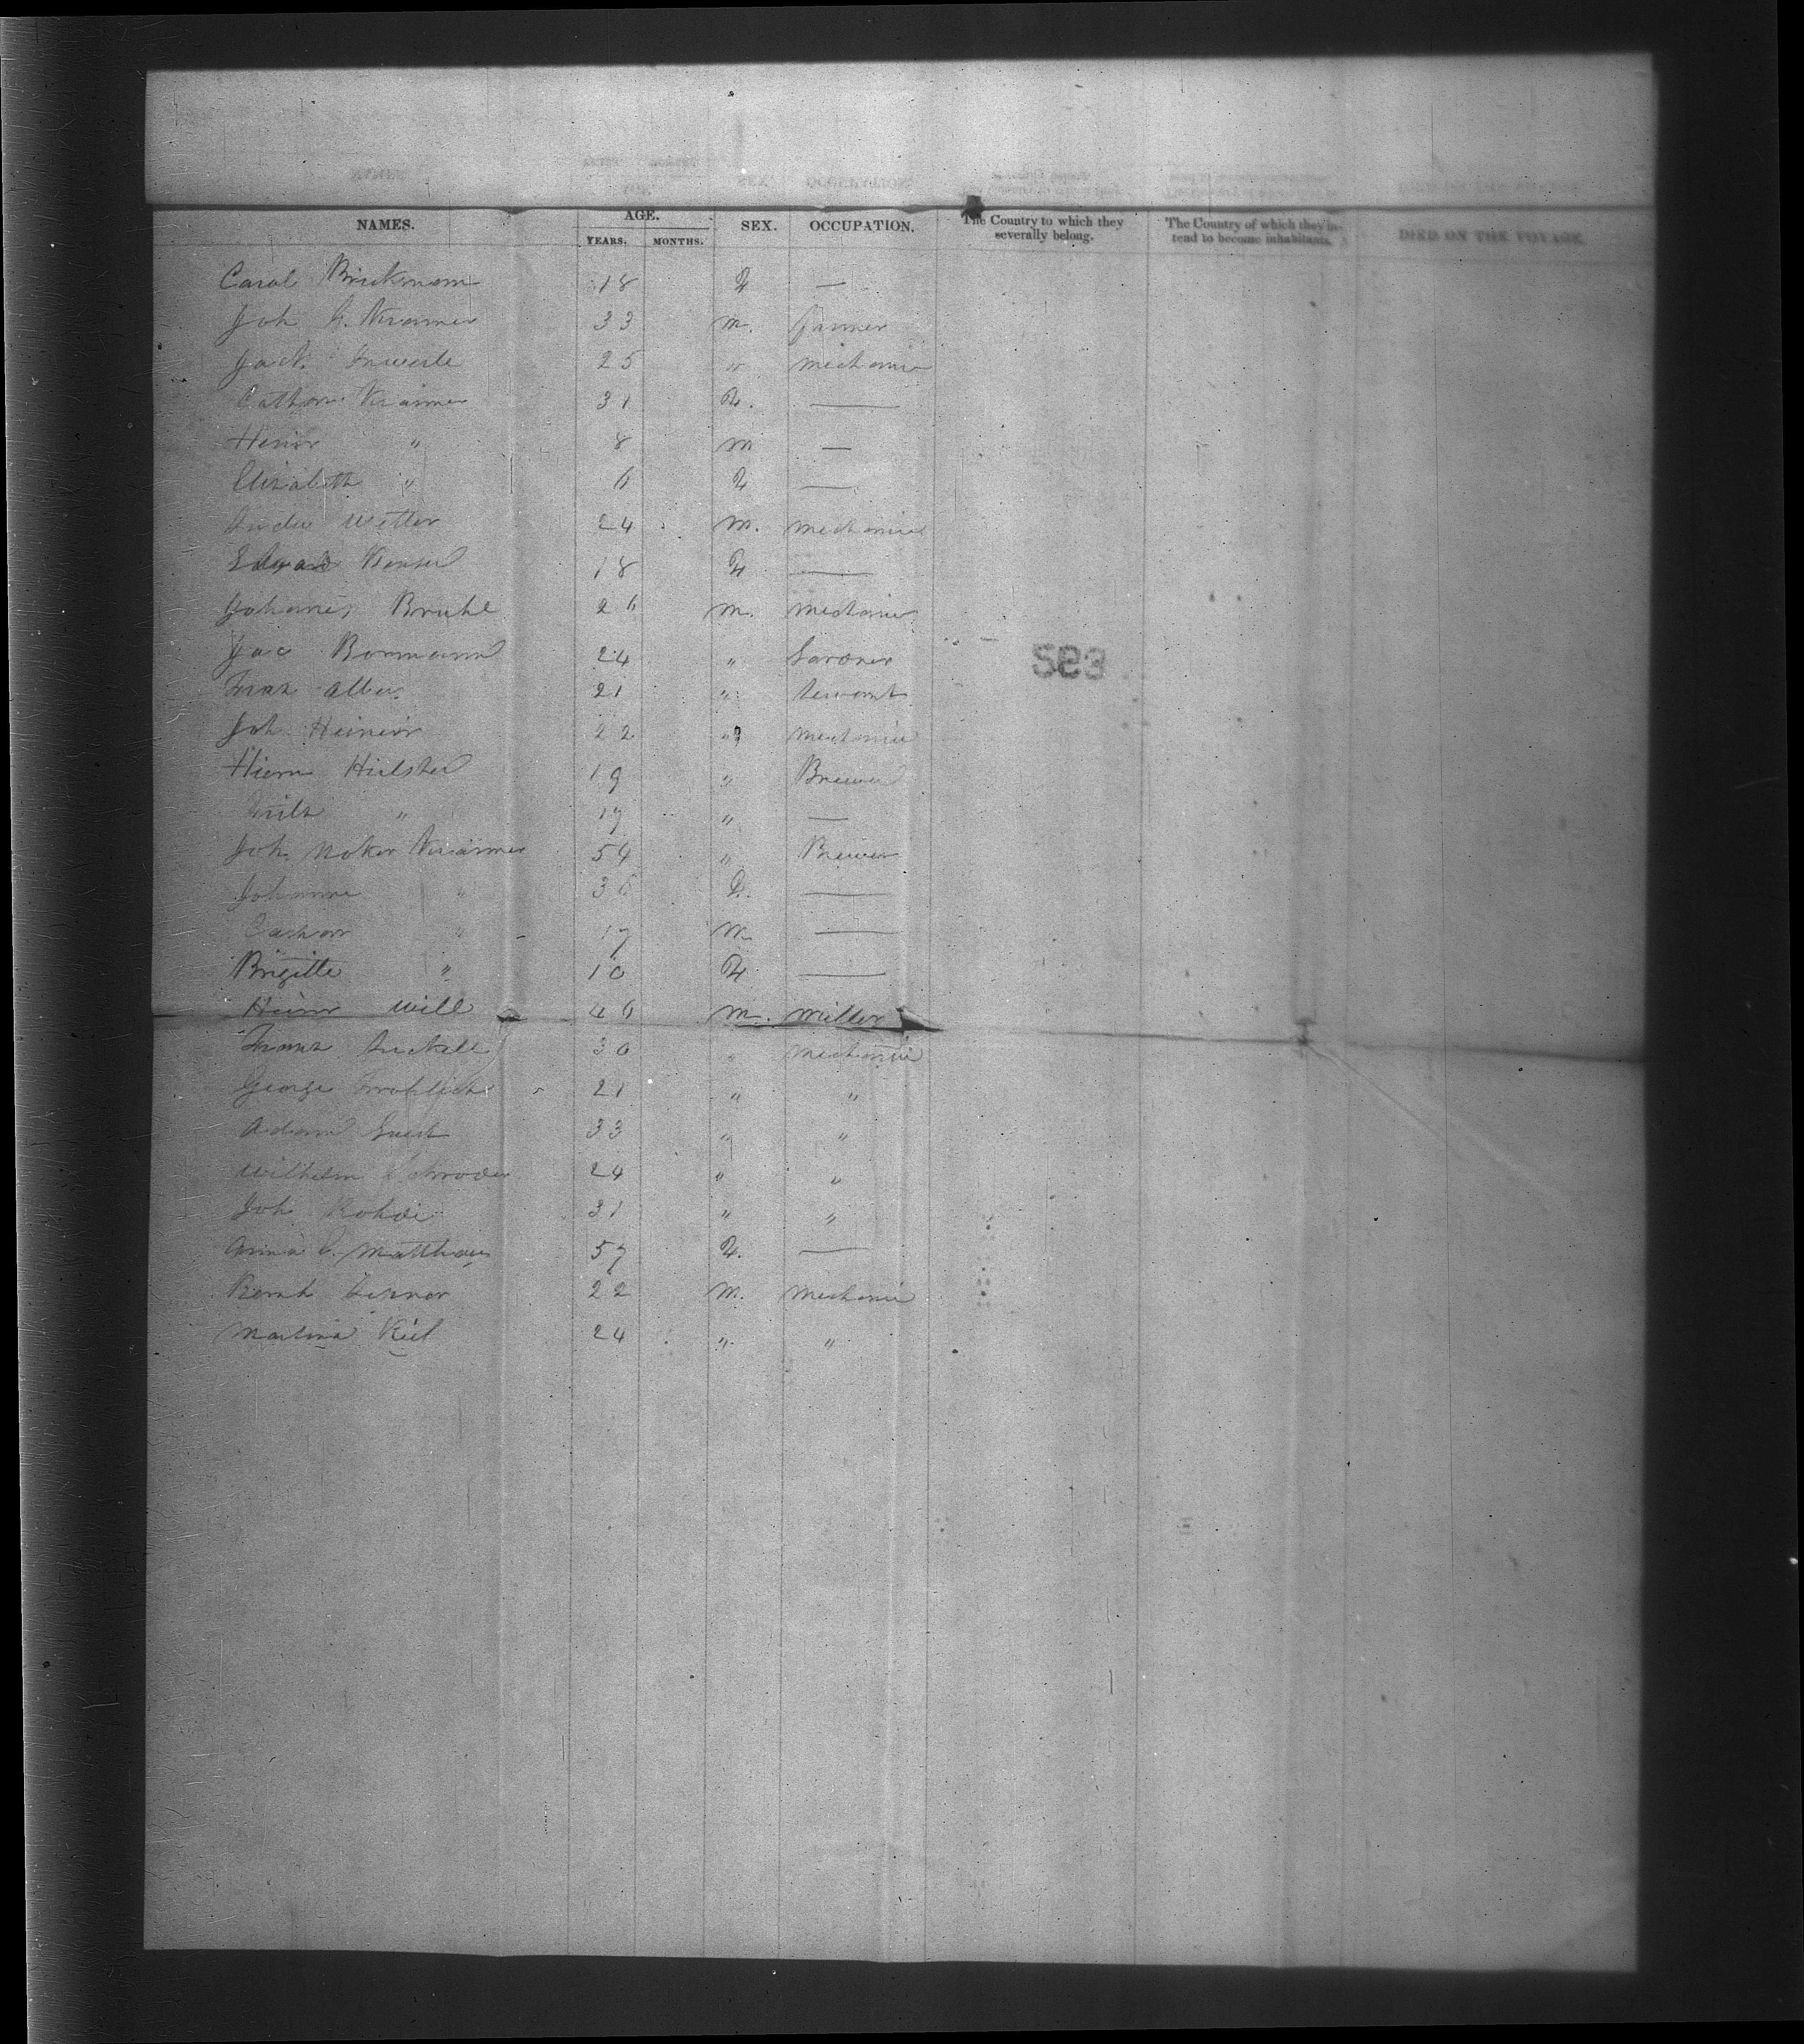 NAMES. AGE. SEX. OCCUPATION. The Country to which they severally belong. The Country of which they intend to become inhabitants. DIED ON THE VOYAGE.
YEARS. MONTHS.
Carol Brickmann 18 F —
Joh G. Kramer 33 m. farmer
Jack 25 " mechanic
Cathar Kramer 31 F. —
Heinr " 8 m —
Elisabeth " 6 F —
Wetter 24 m. mechanic
Edward 18 F —
Johannes Bruhl 26 m. mechanic
Jac Bormann 24 " Gardner
Franz Alber 21 " Servant
Joh Heinrir 22 " mechanic
Hierm Hilster 19 " Brewer
" 17 " —
Joh Noker Kramer 54 " Brewer
Johanne " 36 F. —
Caspar " 17 m —
Brigitte " 10 F —
Heinr Will 46 m. miller
Franz 30 " mechanic
George Frohlich 21 " "
Adam 33 " "
Wilhelm Schroder 24 " "
Joh Rohde 31 " "
Anna C. Matthaus 57 F. —
Bernh 22 m. mechanic
Martina Kiel 24 " "